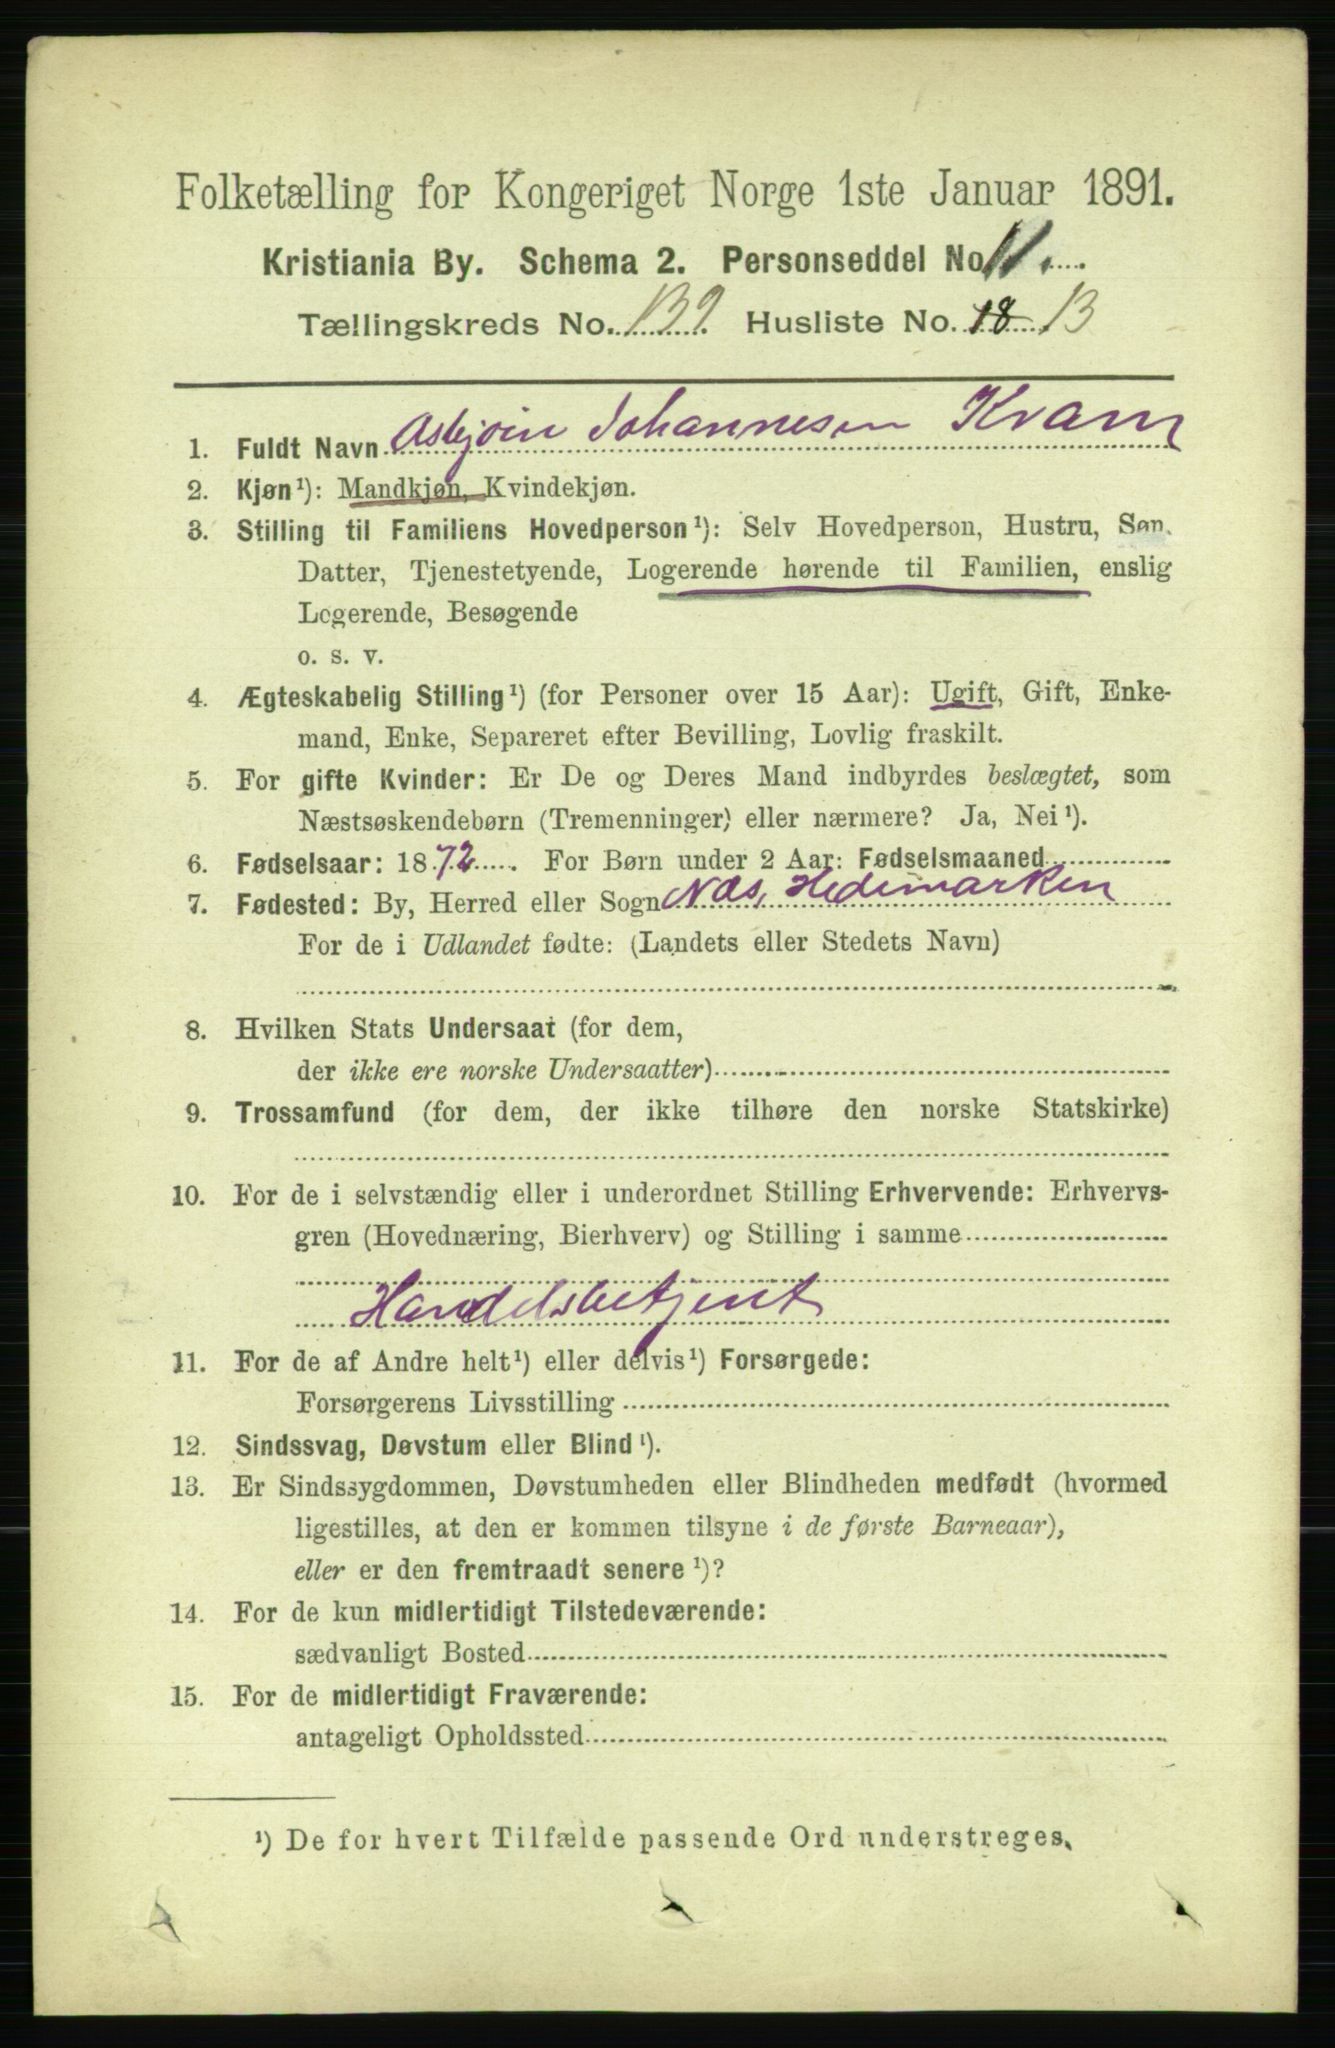 Folketælling for Kongeriget Norge 1ste Januar 1891.
Kristiania By. Schema 2. Personseddel No. 11.
Tællingskreds No. 139. Husliste No. 18 13
1. Fuldt Navn Asbjoin Johannesen Kvam
2. Kjøn¹): Mandkjøn, Kvindekjøn.
3. Stilling til Familiens Hovedperson¹): Selv Hovedperson, Hustru, Søn,
Datter, Tjenestetyende, Logerende hørende til Familien, enslig
Logerende, Besøgende
o. s. v.
4. Ægteskabelig Stilling¹) (for Personer over 15 Aar): Ugift, Gift, Enke-
mand, Enke, Separeret efter Bevilling, Lovlig fraskilt.
5. For gifte Kvinder: Er De og Deres Mand indbyrdes beslægtet, som
Næstsøskendebørn (Tremenninger) eller nærmere? Ja, Nei¹).
6. Fødselsaar: 1872. For Børn under 2 Aar: Fødselsmaaned
7. Fødested: By, Herred eller Sogn Næs, Hedemarken
For de i Udlandet fødte: (Landets eller Stedets Navn)
8. Hvilken Stats Undersaat (for dem,
der ikke ere norske Undersaatter)
9. Trossamfund (for dem, der ikke tilhøre den norske Statskirke)
10. For de i selvstændig eller i underordnet Stilling Erhvervende: Erhvervs-
gren (Hovednæring, Bierhverv) og Stilling i samme
Handelsbetjent
11. For de af Andre helt¹) eller delvis¹) Forsørgede:
Forsørgerens Livsstilling
12. Sindssvag, Døvstum eller Blind¹).
13. Er Sindssygdommen, Døvstumheden eller Blindheden medfødt (hvormed
ligestilles, at den er kommen tilsyne i de første Barneaar),
eller er den fremtraadt senere¹)?
14. For de kun midlertidigt Tilstedeværende:
sædvanligt Bosted
15. For de midlertidigt Fraværende:
antageligt Opholdssted
¹) De for hvert Tilfælde passende Ord understreges.